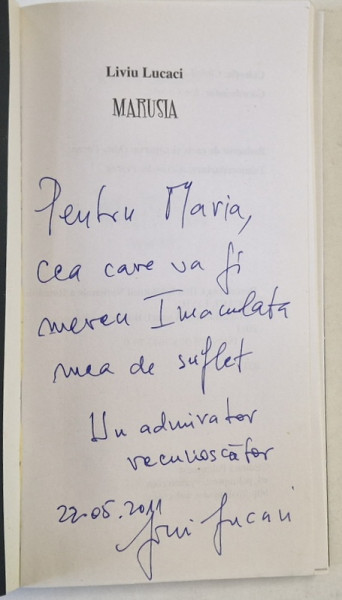 Liviu Lucaci
MARUSIA
Pentru Maria,
cea care va fi
mereu Imaculata
mea de suflet
Un admirator
recunoscător
22.05.2011